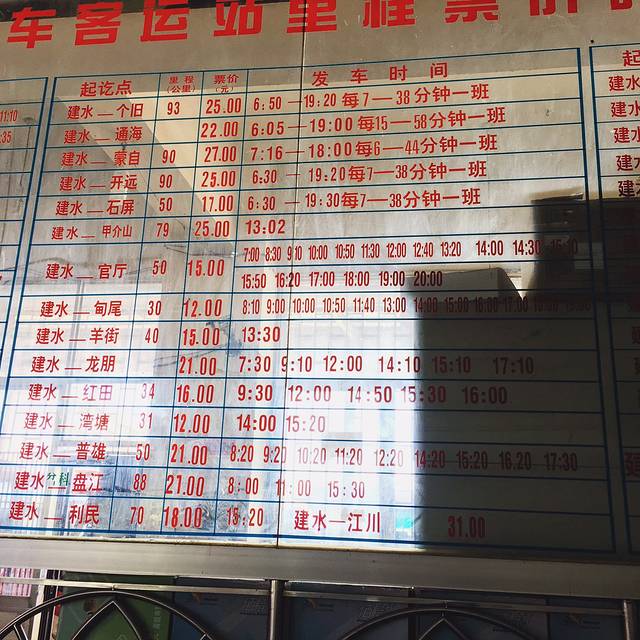 车客运站里程票价
起讫点 里程(公里) 票价(元) 发车时间
建水—个旧 93 25.00 6:50—19:20每7—38分钟一班
建水—通海 22.00 6:05—19:00每15—58分钟一班
建水—蒙自 90 27.00 7:16—18:00每6—44分钟一班
建水—开远 90 25.00 6:30—19:20每7—38分钟一班
建水—石屏 50 17.00 6:30—19:30每7—38分钟一班
建水—甲介山 79 25.00 13:02
建水—官厅 50 15.00 7:00 8:30 9:10 10:00 10:50 11:30 12:00 12:40 13:20 14:00 14:30
15:50 16:20 17:00 18:00 19:00 20:00
建水—甸尾 30 12.00 8:10 9:00 10:00 10:50 11:40 13:00 14:00 15:00 16:00 17:00
建水—羊街 40 15.00 13:30
建水—龙朋 21.00 7:30 9:10 12:00 14:10 15:10 17:10
建水—红田 34 16.00 9:30 12:00 14:50 15:30 16:00
建水—湾塘 31 12.00 14:00 15:20
建水—普雄 50 21.00 8:20 9:20 10:20 11:20 12:20 14:20 15:20 16.20 17:30
建水 盘江 88 27.00 8:00 11:00 15:30
建水—利民 70 18.00 15:20 建水—江川 31.00
11:10
:35
起
建水
建水
建水
建水
建水